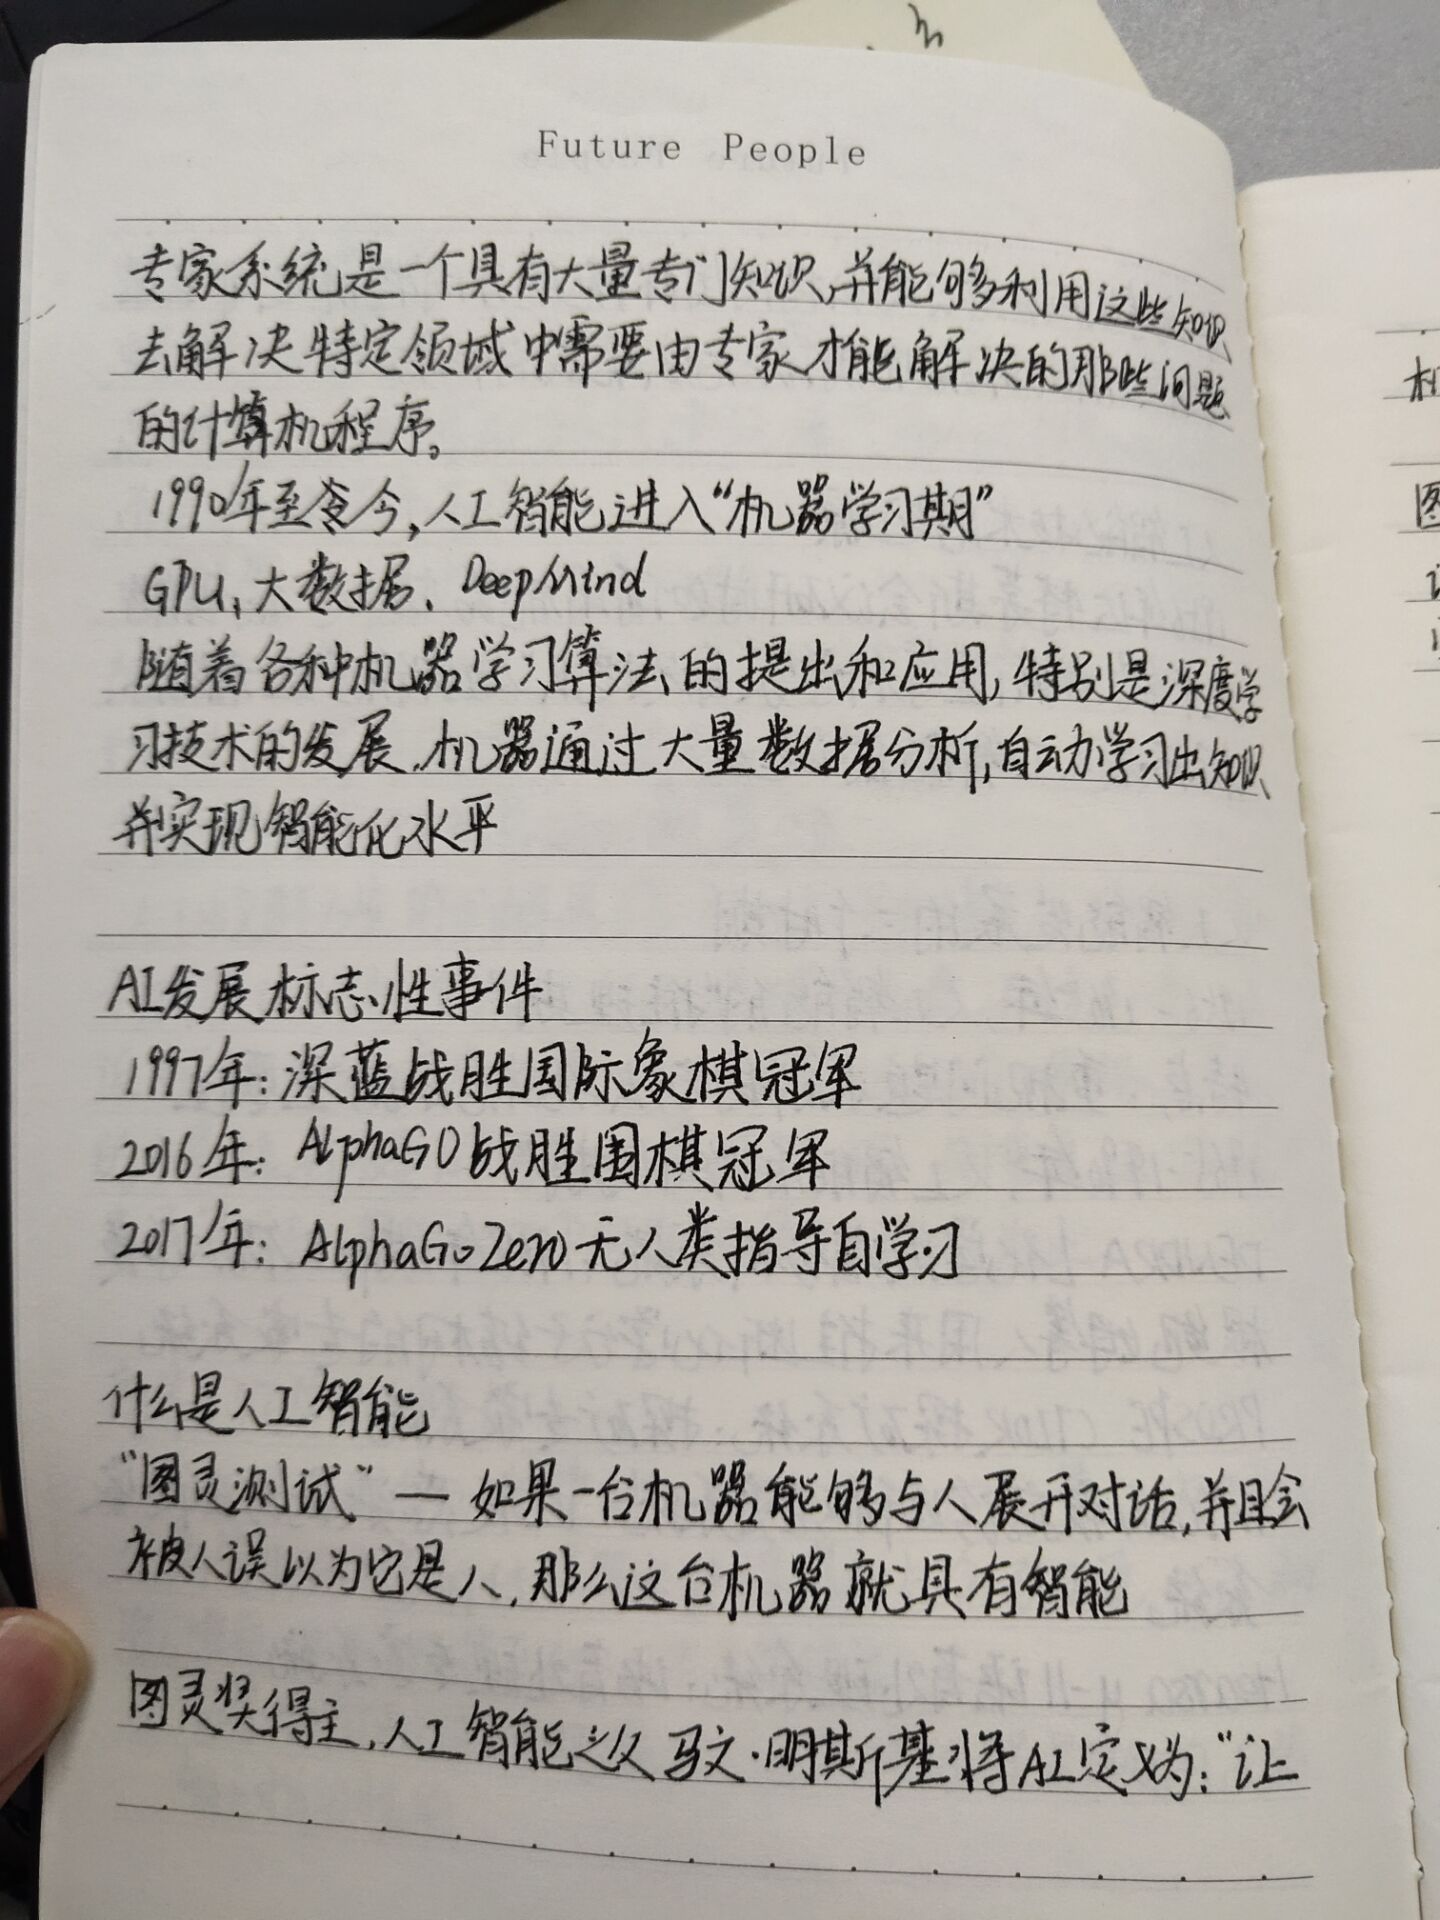 Future People
专家系统是一个具有大量专门知识,并能够多利用这些知识
去解决特定领域中需要由专家才能解决的那些问题
的计算机程序。
1990年至令今,人工智能进入“机器学习期”
GPU、大数据、DeepMind
随着各种机器学习算法的提出和应用,特别是深度学
习技术的发展,机器通过大量数据分析,自动学习出知识
并实现智能化水平
AI发展标志性事件
1997年:深蓝战胜国际象棋冠军
2016年:AlphaGO战胜围棋冠军
2017年:AlphaGoZero无人类指导自学习
什么是人工智能
“图灵测试”— 如果一台机器能够与人展开对话,并且会
被人误以为它是人,那么这台机器就具有智能
图灵奖得主,人工智能之父马文·明斯基将AI定义为:“让
机
图